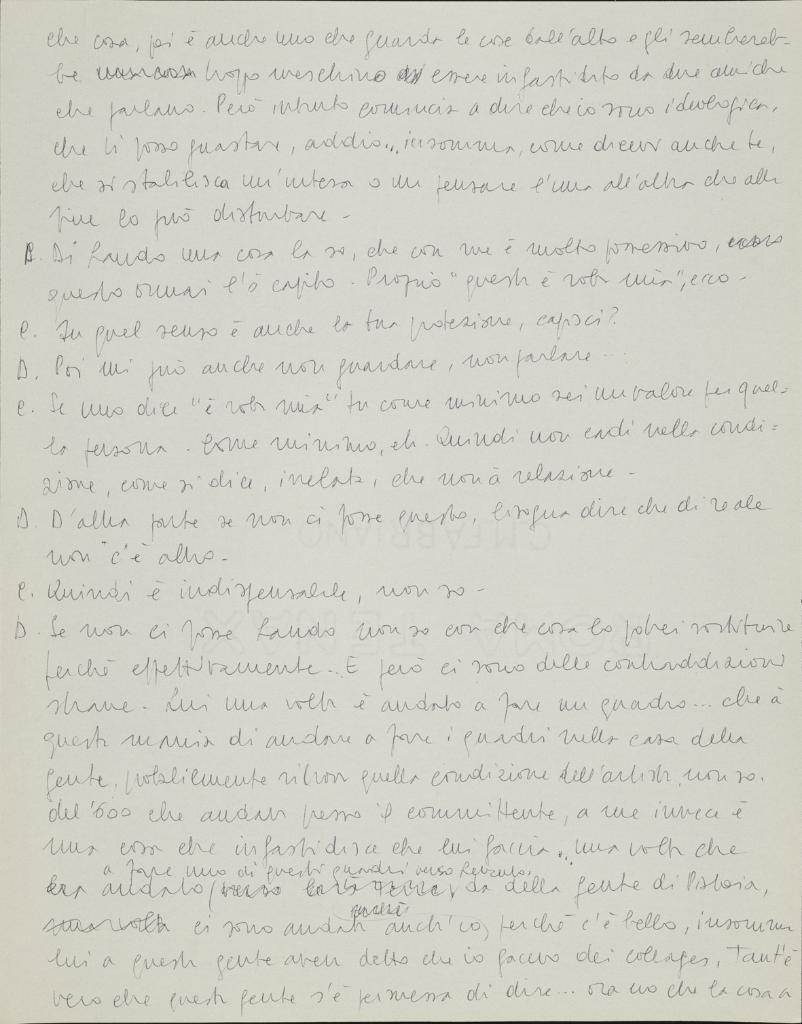 che cosa, poi è anche uno che guarda le cose dall'alto e gli sembrereb-
be troppo meschino essere infastidito da due amiche
che parlano. Però intanto comincia a dire che io sono ideologica,
che ti posso guastare, addio... insomma, come dicevi anche te,
che si stabilisca un'intesa o un pensare l'una all'altra che alla
fine lo può disturbare -
D. Di Lando una cosa la so, che con me è molto possessivo,
questo ormai l'ò capito. Proprio "questa è roba mia", ecco -
C. In quel senso è anche la tua protezione, capisci?
D. Poi mi può anche non guardare, non parlare...
C. Se uno dice "è roba mia" tu come minimo sei un valore per quel=
la persona. Come minimo, eh. Quindi non cadi nella condi=
zione, come si dice, irrelata, che non à relazione -
D. D'altra parte se non ci fosse questo, bisogna dire che di reale
non c'è altro -
C. Quindi è indispensabile, non so -
D. Se non ci fosse Lando non so con che cosa lo potrei sostituire
perché effettivamente... E però ci sono delle contraddizioni
strane. Lui una volta è andato a fare un quadro... che à
questa mania di andare a fare i quadri nella casa della
gente, probabilmente ritrova quella condizione dell'artista, non so,
del '600 che andava presso il committente, a me invece è
una cosa che infastidisce che lui faccia... una volta che
a fare uno di questi quadri verso
era andato da della gente di Pistoia,
ci sono andata anch'io, perché c'è bello, insomma
lui a questa gente aveva detto che io facevo dei collages, Tant'è
vero che questa gente s'è permessa di dire... ora no che la cosa a